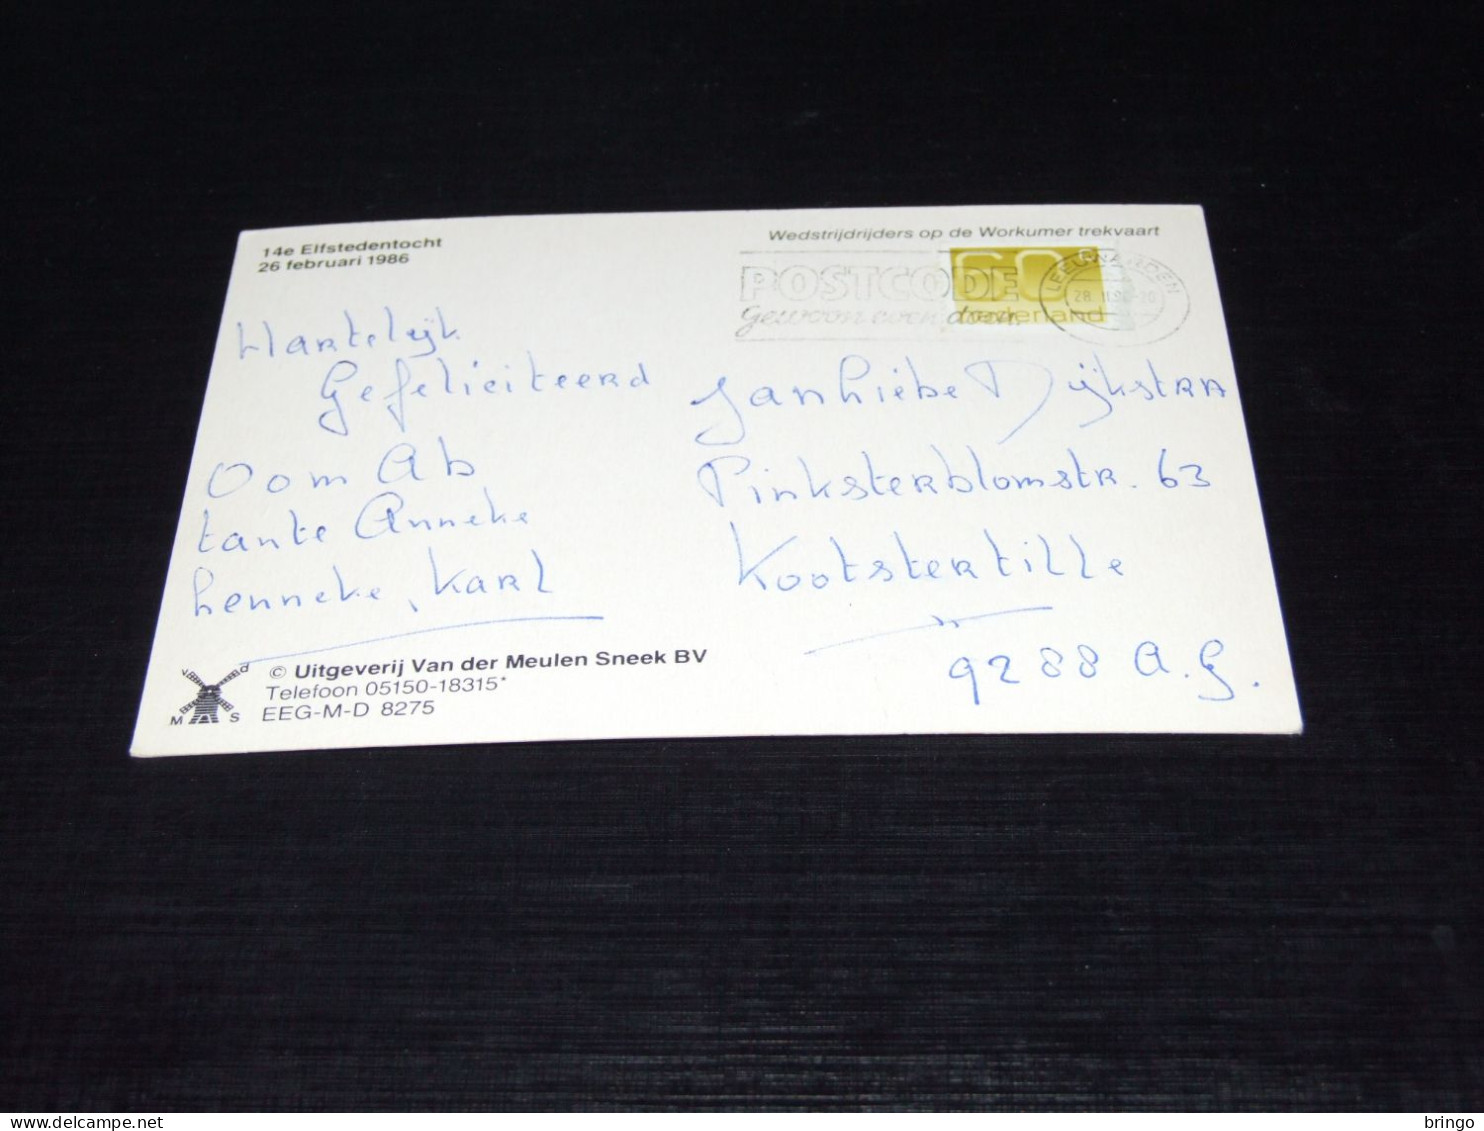 14e Elfstedentocht
26 februari 1986
Wedstrijdrijders op de Workumer trekvaart
POSTCODE
Gewoon even doen.
60 c
nederland
LEEUWARDEN
Hartelijk
Gefeliciteerd
Oom Ab
tante Anneke
henneke, Karl
Janhiebe Dijkstra
Pinksterblomstr. 63
Kootstertille
9288 A.G.
© Uitgeverij Van der Meulen Sneek BV
Telefoon 05150-18315*
EEG-M-D 8275
v d
M S
bringo